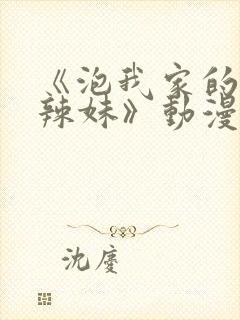 《泡我家的
辣妹》動漫
沈廑